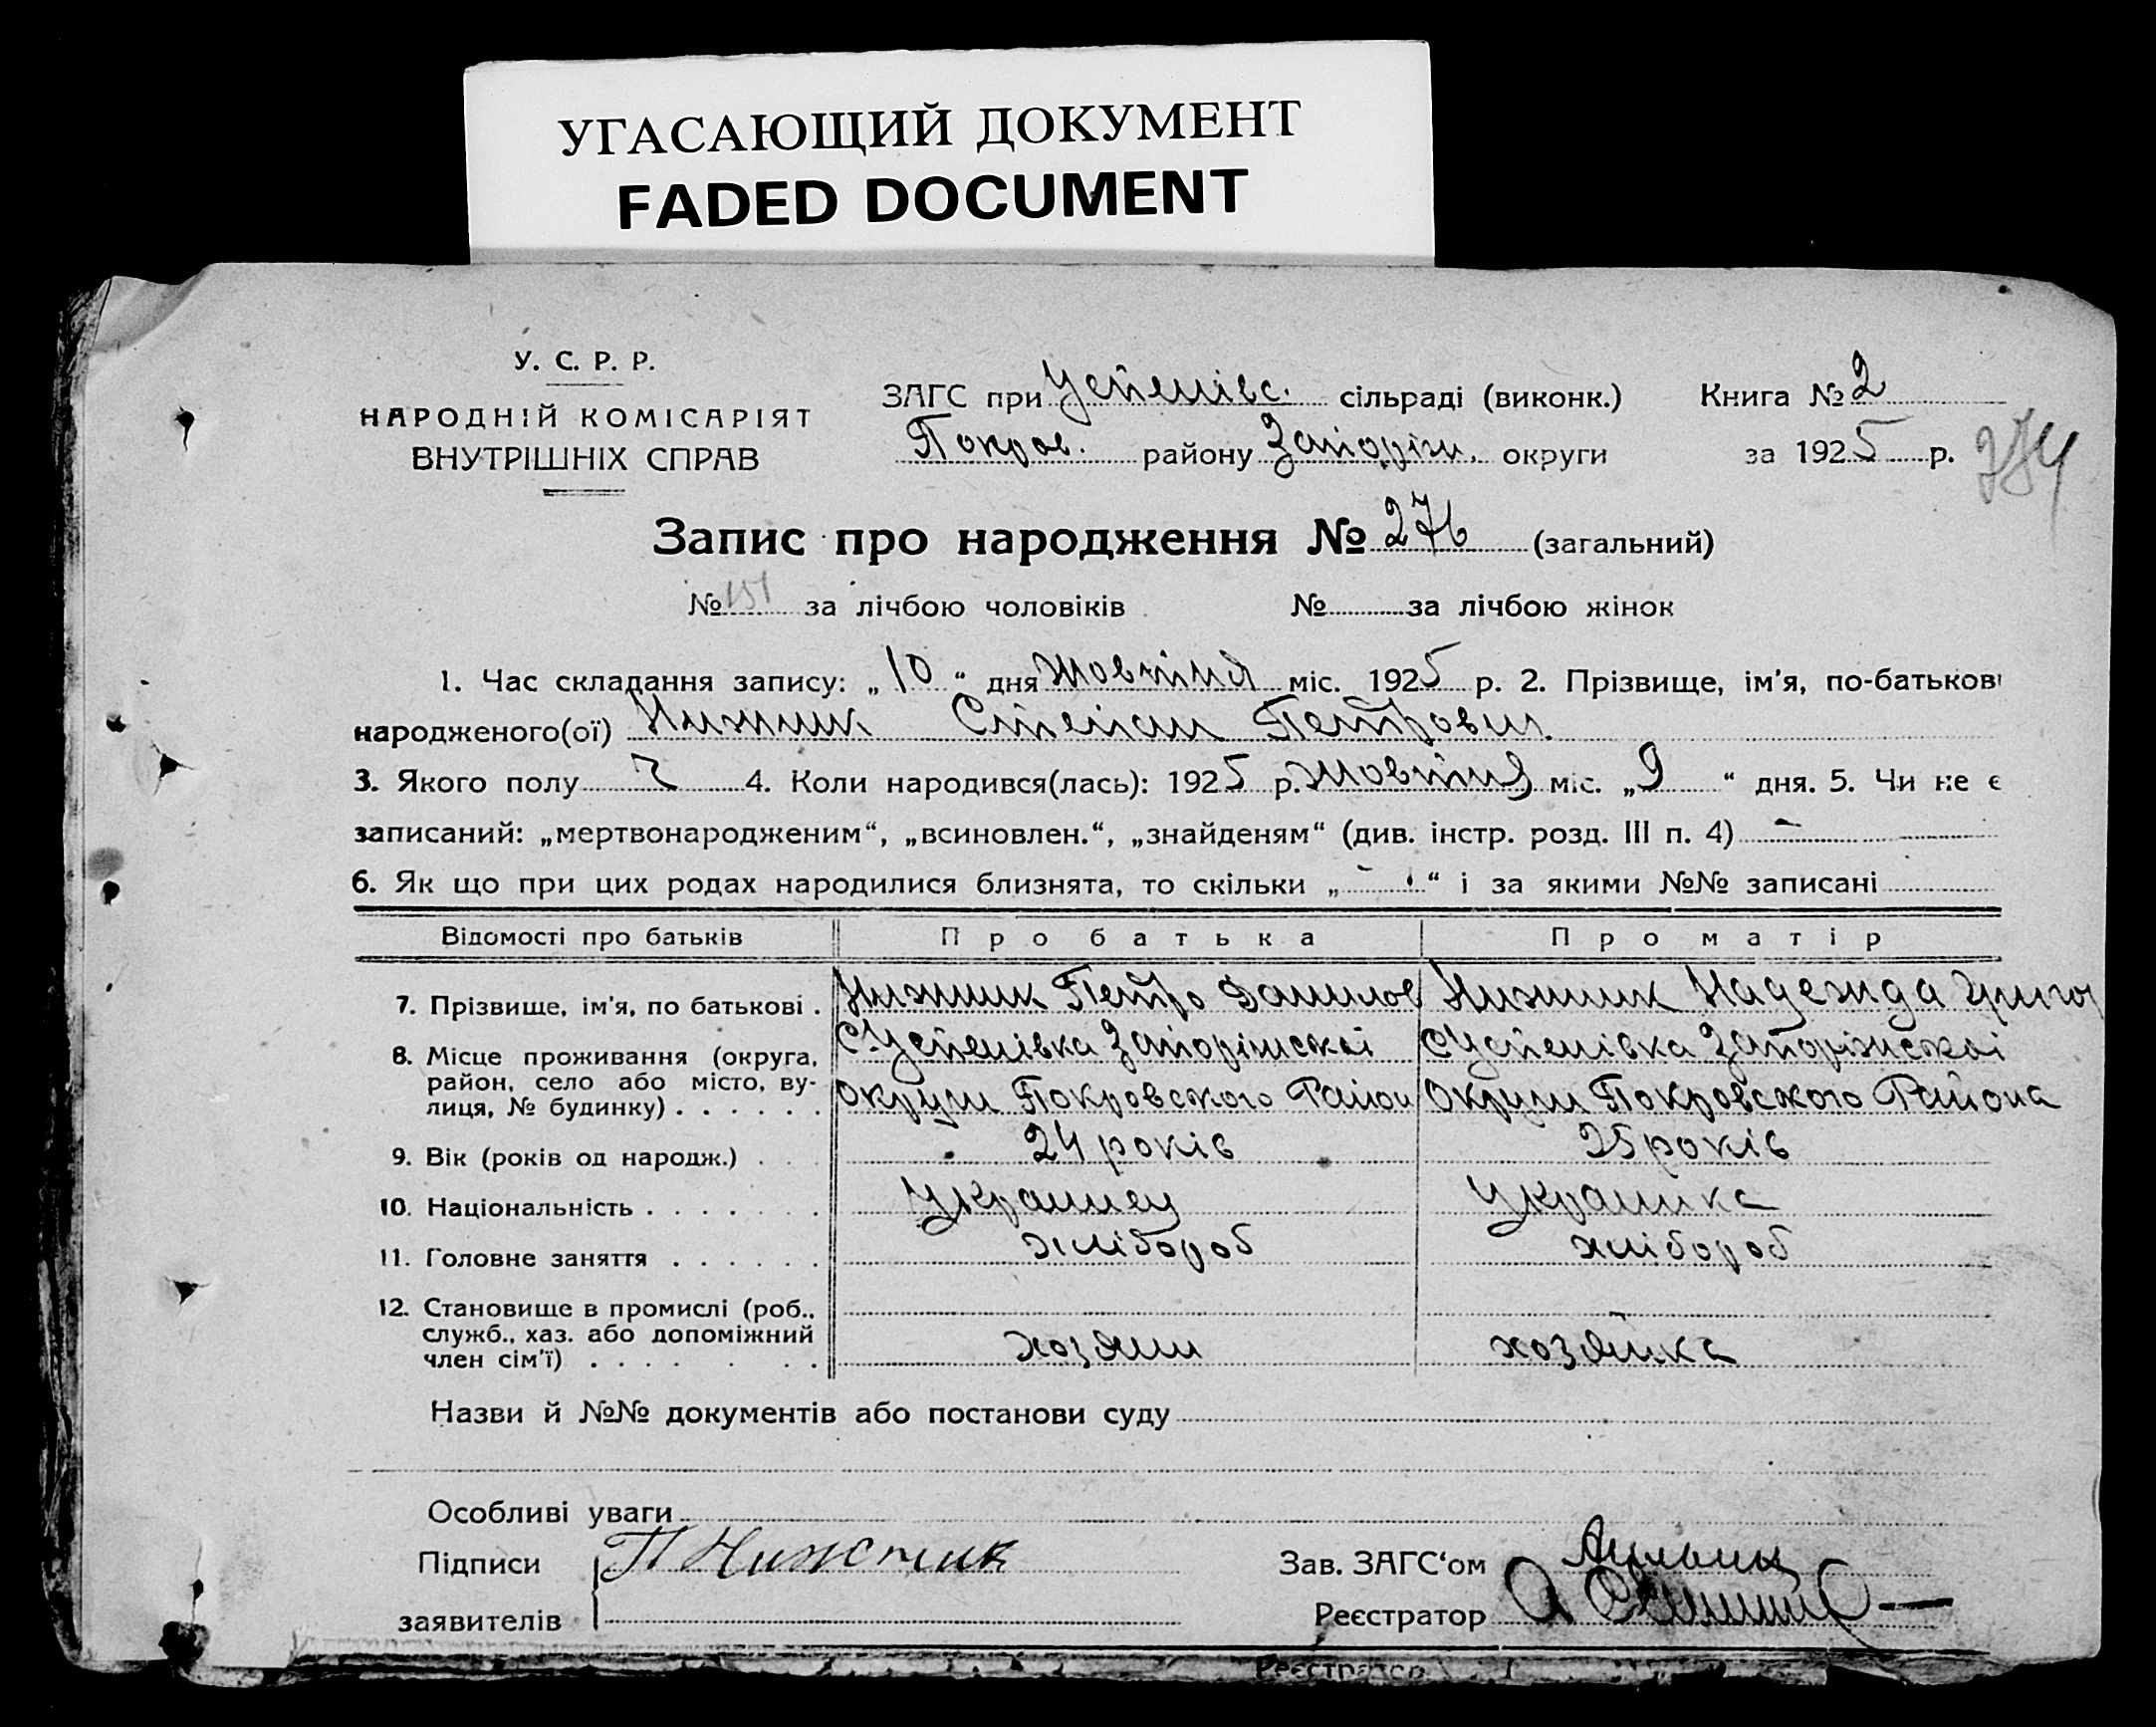 УГАСАЮЩИЙ ДОКУМЕНТ
FADED DOCUMENT
У. С. Р. Р.
НАРОДНІЙ КОМІСАРІЯТ
ВНУТРІШНІХ СПРАВ
ЗАГС при Успенівс. сільраді (виконк.) Книга № 2
Покров. району Запоріж. округи за 1925 р.
274
Запис про народження № 276 (загальний)
№ 151 за лічбою чоловіків № за лічбою жінок
1. Час складання запису: „10“ дня Жовтня міс. 1925 р. 2. Прізвище, ім'я, по-батькові
народженого(ої) Нижник Степан Петрович
3. Якого полу Ч 4. Коли народився(лась): 1925 р. Жовтня міс. „9“ дня. 5. Чи не є
записаний: „мертвонародженим“, „всиновлен.“, „знайденям“ (див. інстр. розд. III п. 4) -
6. Як що при цих родах народилися близнята, то скільки „-“ і за якими №№ записані
Відомості про батьків Про батька Про матір
7. Прізвище, ім'я, по батькові . Нижник Петро Данилов Нижник Надежда Григор
8. Місце проживання (округа, район, село або місто, вулиця, № будинку) . . . . . . С. Успенівка Запоріжської С Успенівка Запоріжської
округи Покровского Район Округи Покровского Района
9. Вік (років од народж.) . . . 24 років 25 років
10. Національність . . . . . . . Украинец Украинка
11. Головне заняття . . . . . . хлібороб хлібороб
12. Становище в промислі (роб.. служб., хаз. або допоміжний член сім'ї) . . . . . . . хозяин хозяйка
Назви й №№ документів або постанови суду
Особливі уваги
Підписи П Нижник Зав. ЗАГС‘ом
заявителів Реєстратор
Реєстратор